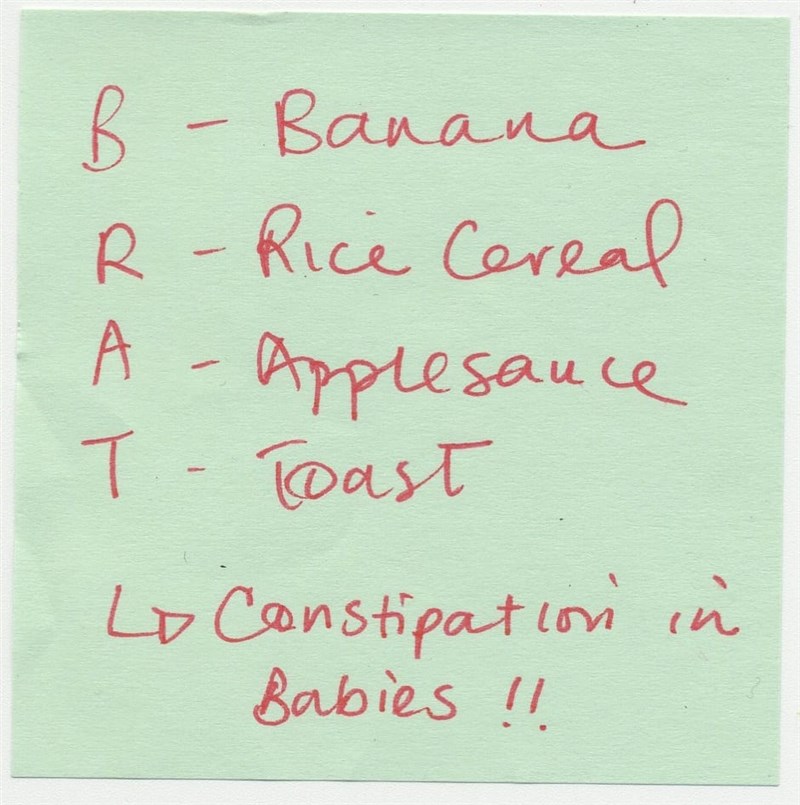 B - Banana
R - Rice Cereal
A - Applesauce
T - Toast
↳ Constipation in
Babies !!